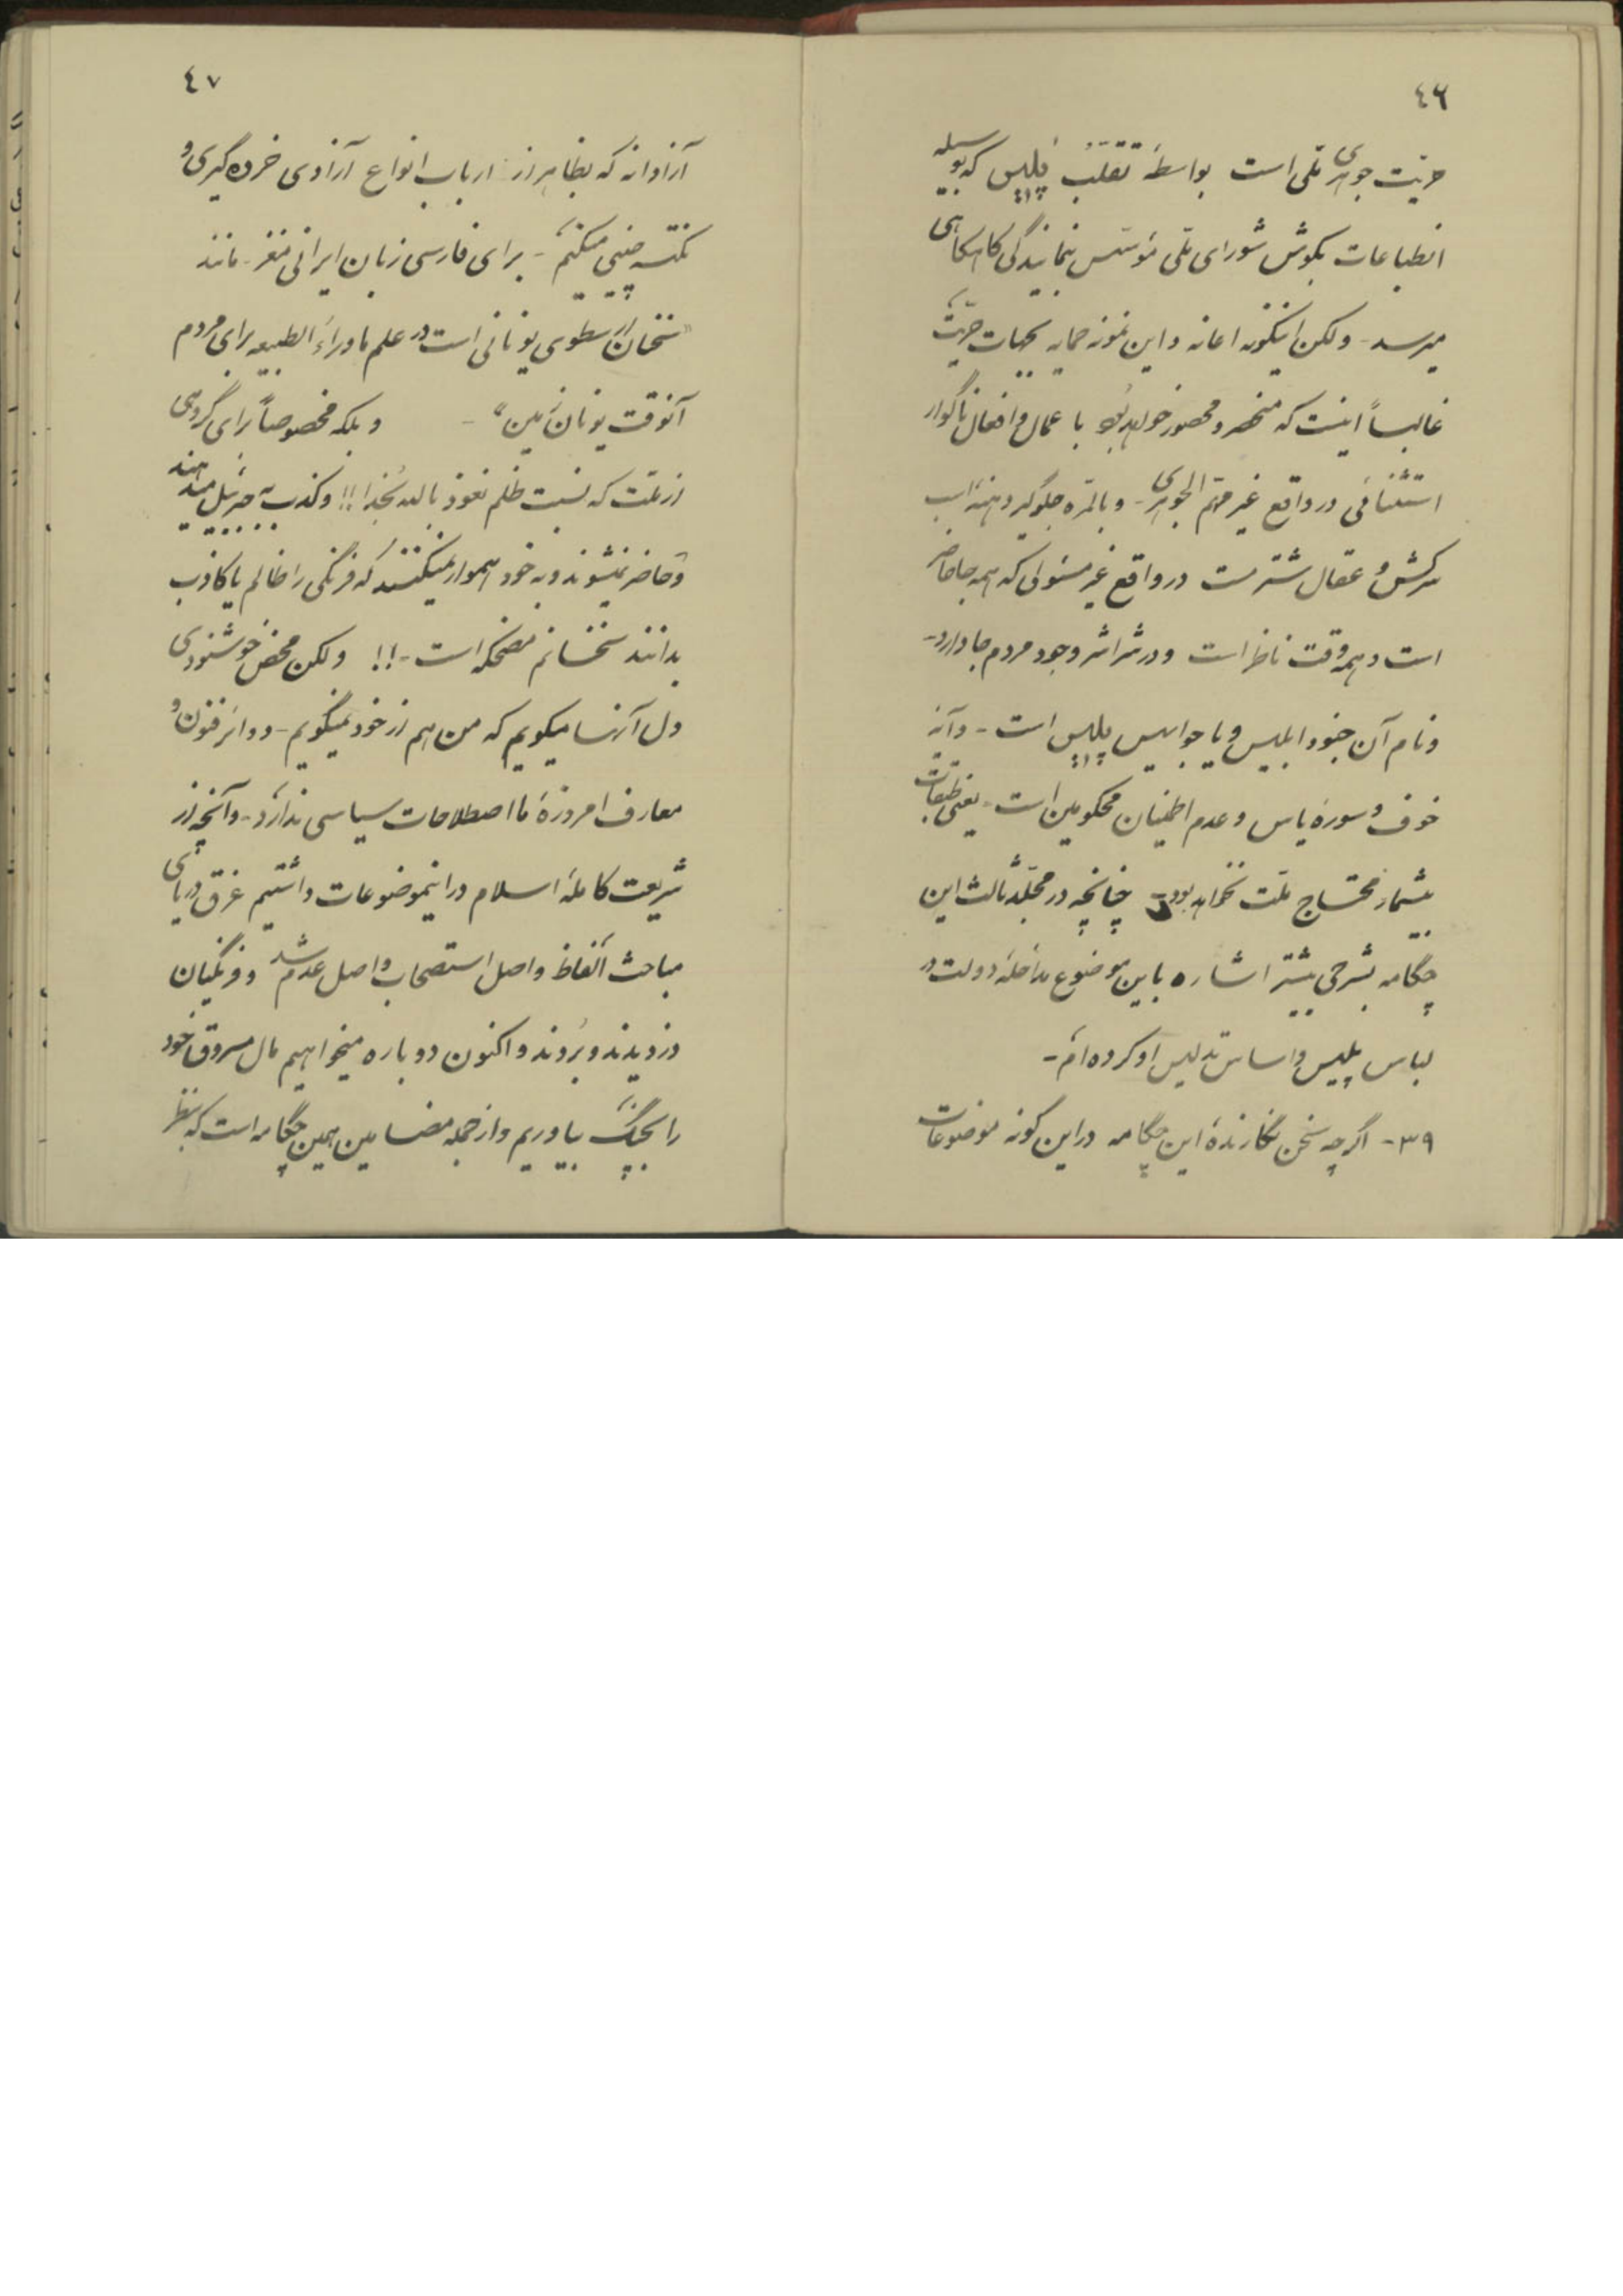 ٤٦
حریّت جوهری ملّی است بواسطهٔ تقلب پلیس که بوسیله
انطباعات بگوش شورای ملّی مؤسّس بنمایندگی گاه‌گاهی
میرسد - ولکن اینگونه اعانه و این نمونه حمایه بحیات حریّت
غالباً اینست که منحصر و محصور خواهد بود با عمال و افعال ناگوار
استثنائی در واقع غیر متمّم الجوهری - و بالمرّه جلوگیر و
سرکش و عقال شتر مست در واقع غیر مسئولی که همه جا حاضر
است و همه وقت ناظر است و در شراشر وجود مردم جا دارد -
و نام آن جنود ابلیس و یا جوابیس پلیس است - و آیهٔ
خوف و سورهٔ یاس و عدم اطمینان محکومین است - یعنی طبقات
بیشمار محتاج ملّت نخواهد بود - چنانچه در مجلّد ثالث این
چگامه بشرحی بیشتر اشاره باین موضوع مداخلهٔ دولت در
لباس پلیس و اساس تدلیس او کرده‌ام -
٣٩ - اگرچه سخن نگارندهٔ این چگامه در این گونه موضوعات
٤٧
آزادانه که بظاهر از ارباب انواع آزادی خرده گیری و
نکته چینی میکنم - برای فارسی زبان ایرانی مغز - مانند
"سخنان ارسطوی یونانی است در علم ماوراء الطبیعه برای مردم
آنوقت یونان زمین" - و بلکه مخصوصاً برای گروهی
از ملّت که نسبت ظلم نعوذ بالله بخدا !! و کذب به جبرئیل میدهند
و حاضر نمیشوند و به خود هموار نمیکنند که فرنگی را ظالم یا کاذب
بدانند سخنانم مضحکه است - !! ولکن محض خوشنودی
دل آنها میگویم که من هم از خود نمیگویم - دوائر فنون و
معارف امروزهٔ ما اصطلاحات سیاسی ندارد - و آنچه از
شریعت کاملهٔ اسلام در اینموضوعات داشتیم غرق دریای
مباحث الفاظ و اصل استصحاب و اصل عدم شد و فرنگیان
دزدیدند و بُردند و اکنون دوباره میخواهیم مال مسروق خود
را بچنگ بیاوریم و از جمله مضامین همین چگامه است که بنظر